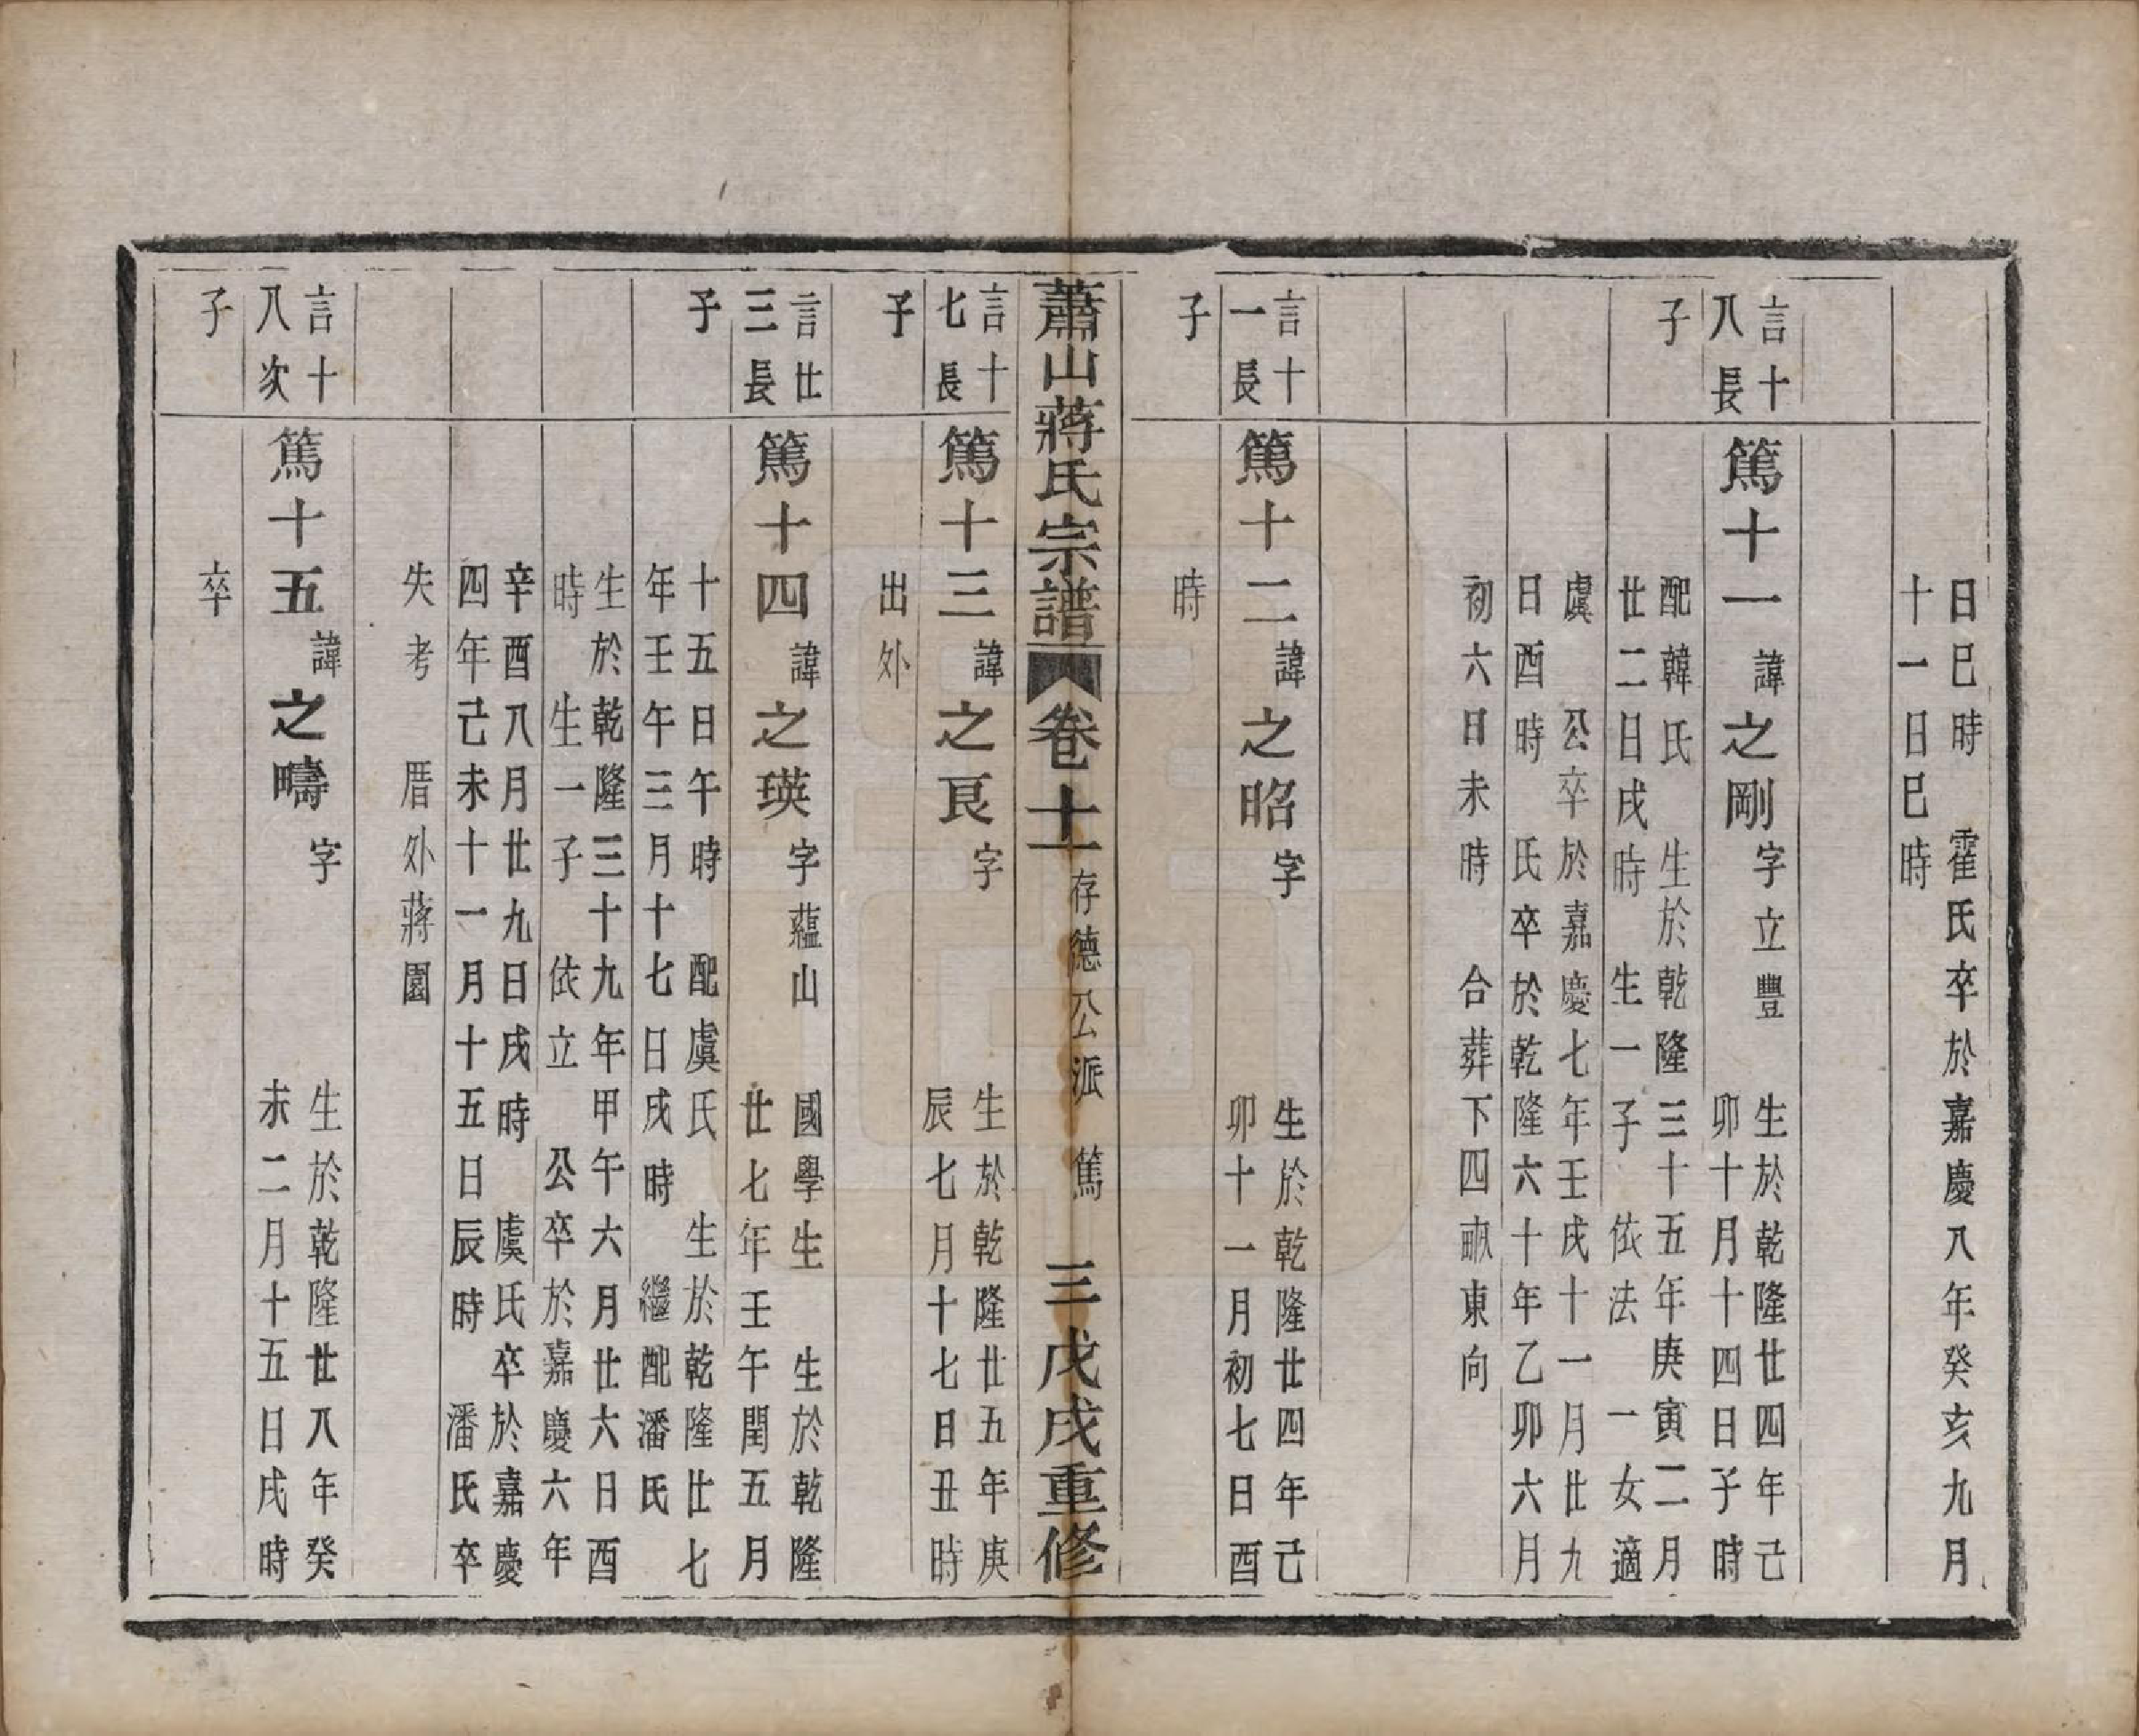 日巳時　霍氏卒於嘉慶八年癸亥九月
十一日巳時
言十
八長
子
篤十一
諱
之剛
字立豐
生於乾隆廿四年己
卯十月十四日子時
配韓氏　生於乾隆三十五年庚寅二月
廿二日戌時　生一子　依法　一女適
虞　公卒於嘉慶七年壬戌十一月廿九
日酉時　氏卒於乾隆六十年乙卯六月
初六日未時　合葬下四畝東向
言十
一長
子
篤十二
諱
之昭
字
生於乾隆廿四年己
卯十一月初七日酉
時
蕭山蔣氏宗譜
卷十一
存德公派　篤
三
戊戌重修
言十
七長
子
篤十三
諱
之艮
字
生於乾隆廿五年庚
辰七月十七日丑時
出外
言廿
三長
子
篤十四
諱
之瑛
字蘊山
國學生　生於乾隆
廿七年壬午閏五月
十五日午時　配虞氏　生於乾隆廿七
年壬午三月十七日戌時　繼配潘氏
生於乾隆三十九年甲午六月廿六日酉
時　生一子　依立　公卒於嘉慶六年
辛酉八月廿九日戌時　虞氏卒於嘉慶
四年己未十一月十五日辰時　潘氏卒
失考　厝外蔣園
言十
八次
子
篤十五
諱
之疇
字
生於乾隆廿八年癸
未二月十五日戌時
卒